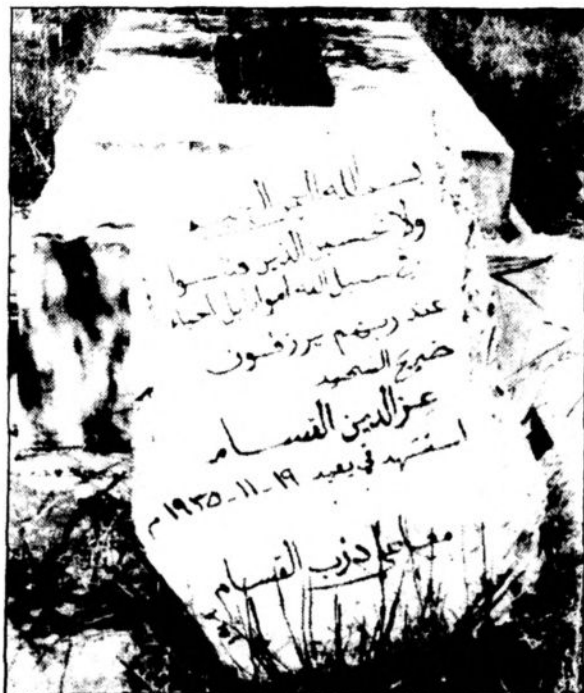 بسم الله الرحمن الرحيم
ولا تحسبن الذين قتلوا
في سبيل الله أمواتا بل احياء
عند ربهم يرزقون
ضريح الشهيد
عز الدين القسام
استشهد في يعبد ١٩-١١-١٩٣٥م
معا على درب القسام